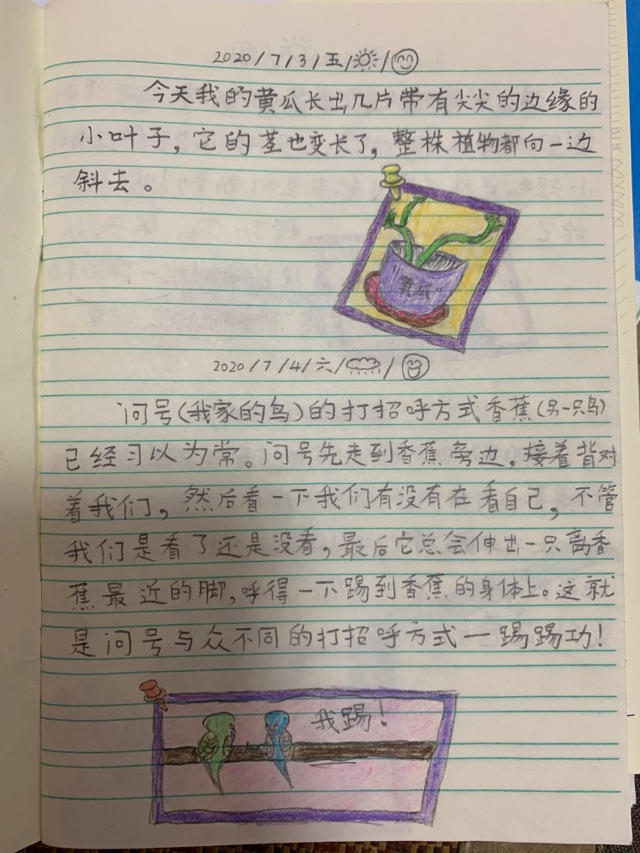 2020/7/3/五/
今天我的黄瓜长出几片带有尖尖的边缘的
小叶子，它的茎也变长了，整株植物都向一边
斜去。
"黄瓜"
2020/7/4/六/
问号(我家的鸟)的打招呼方式香蕉(另一只鸟)
已经习以为常。问号先走到香蕉旁边，接着背对
着我们，然后看一下我们有没有在看自己，不管
我们是看了还是没看，最后它总会伸出一只离香
蕉最近的脚，呼得一下踢到香蕉的身体上。这就
是问号与众不同的打招呼方式一踢踢功！
我踢！